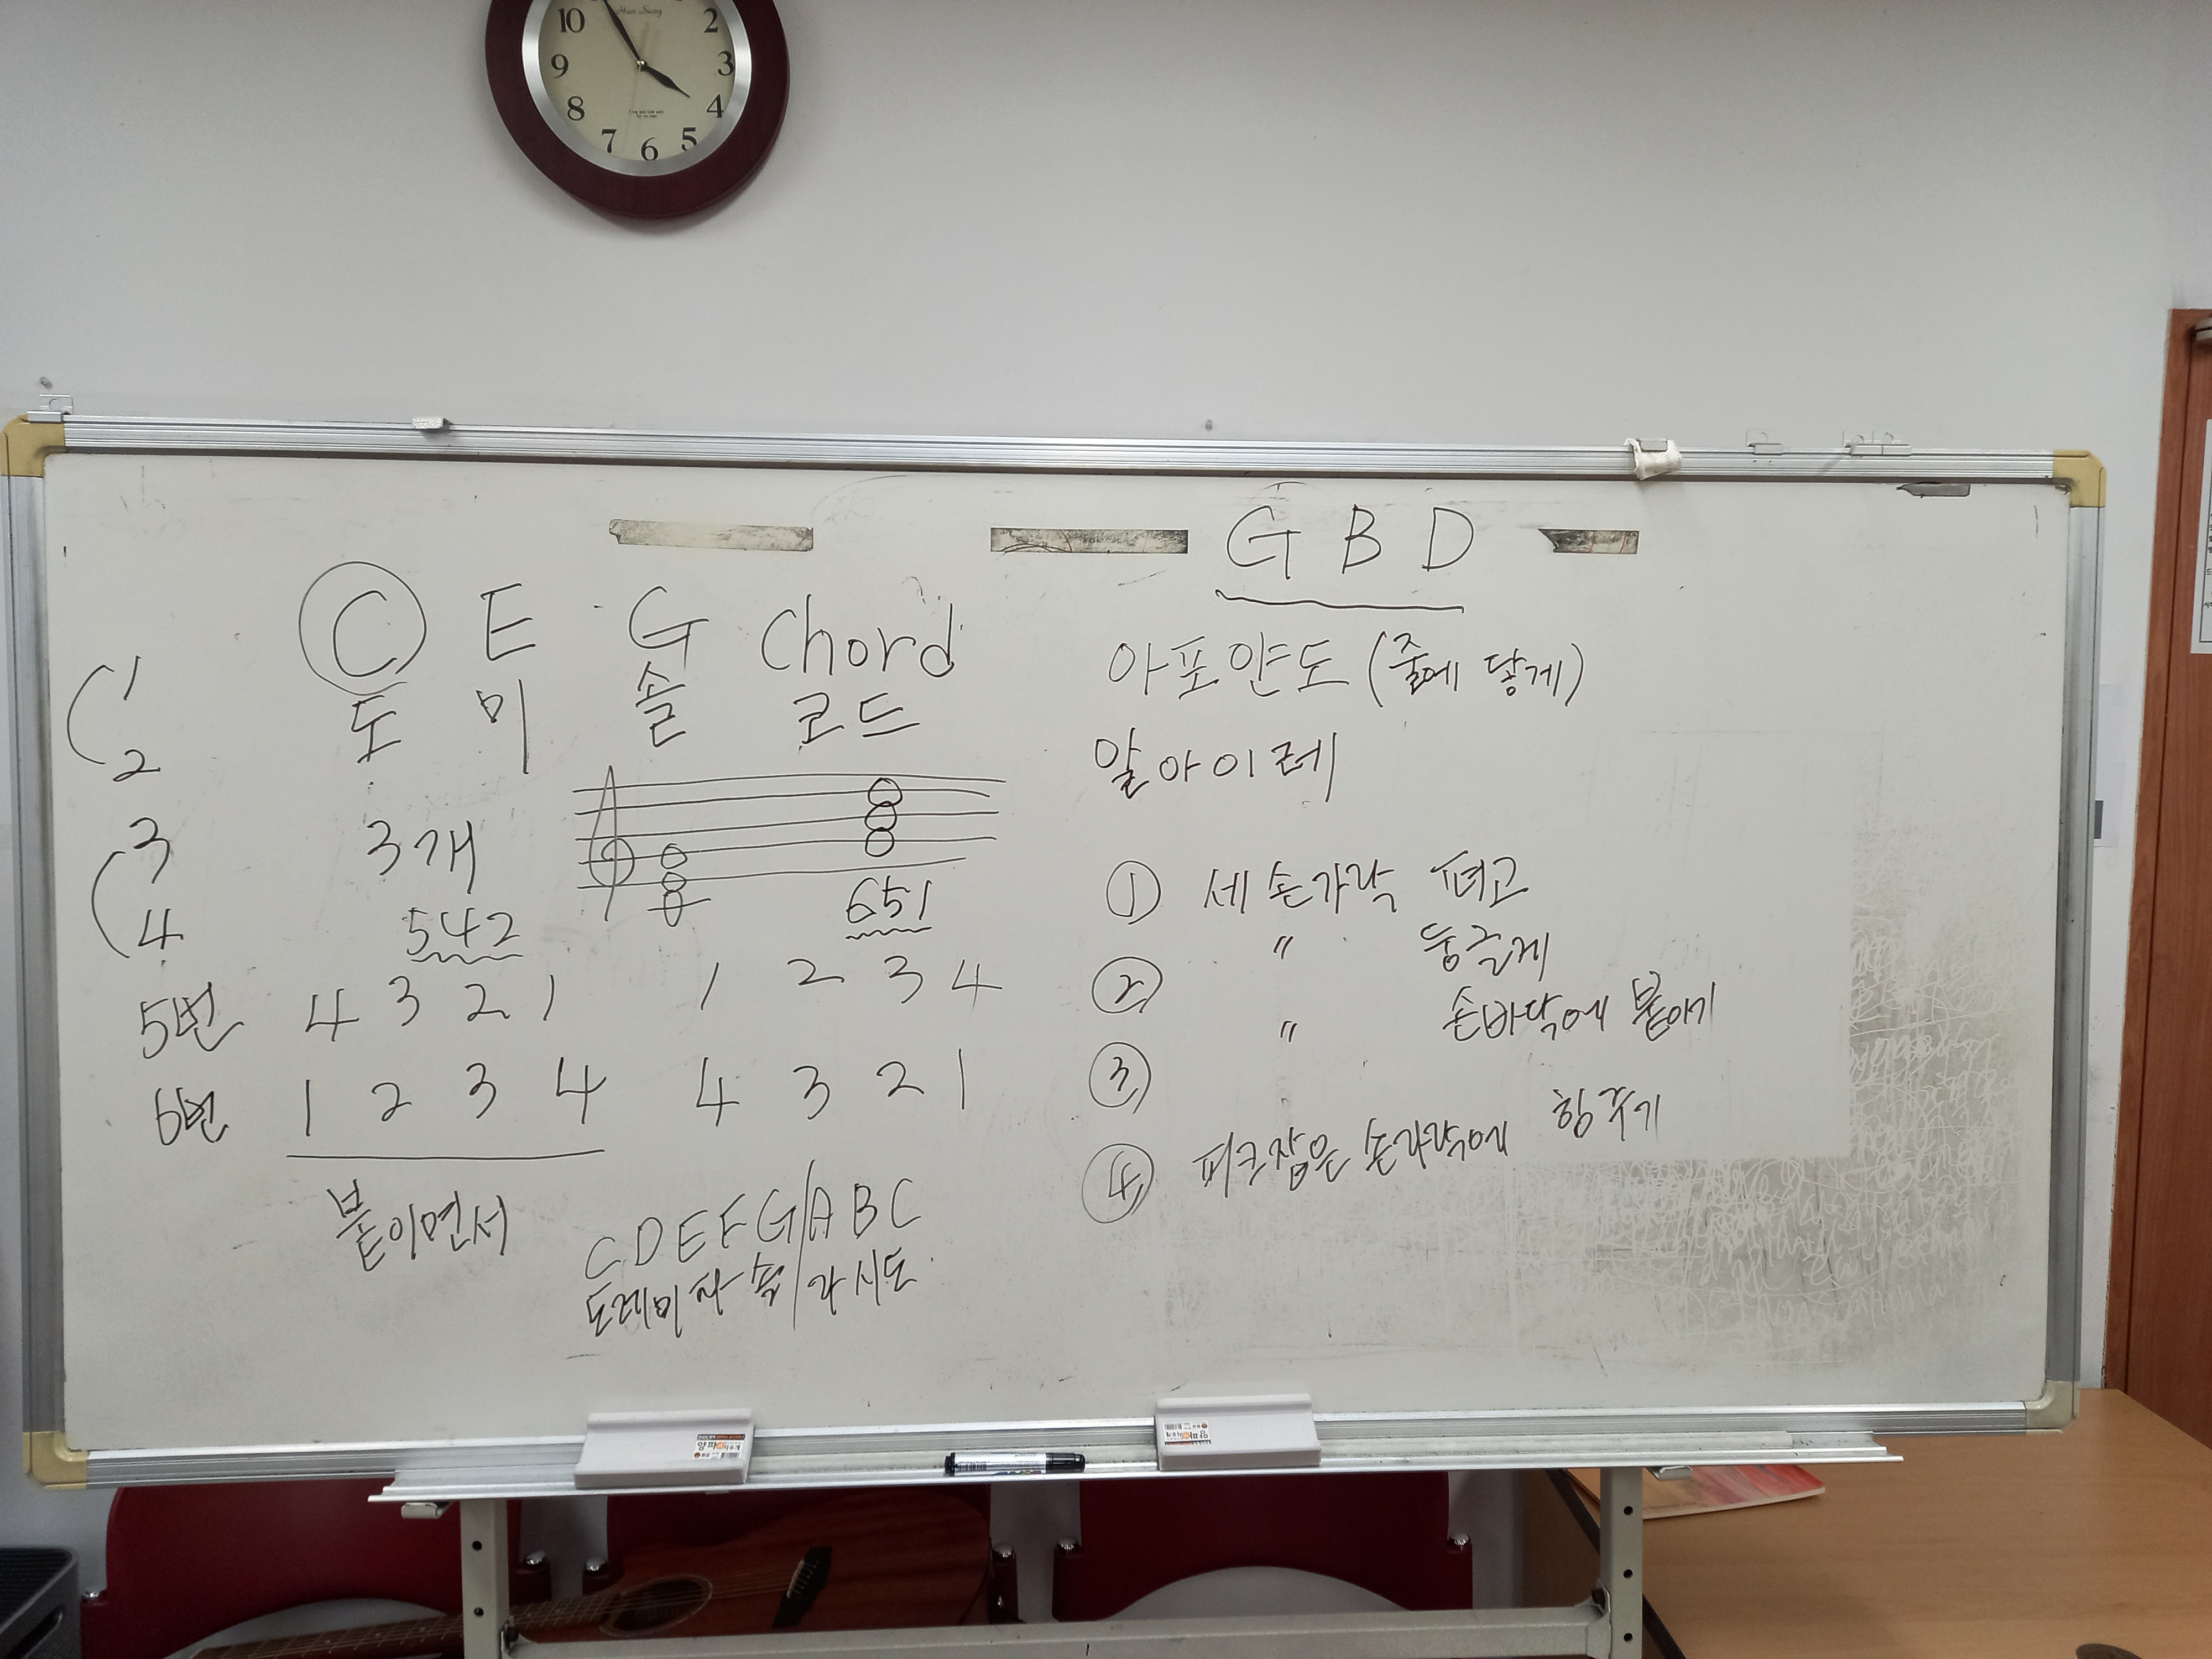 10 2
9 3
8 4
7 6 5
Han Sung
G B D
C E G Chord
도 미 솔 코드
1
2
3
4
3개
542
651
5번 4 3 2 1 1 2 3 4
6번 1 2 3 4 4 3 2 1
붙이면서
C D E F G / A B C
도레미파솔 / 라시도
아포얀도 (줄에 닿게)
알아이레
① 세 손가락 펴고
② 〃 둥글게
③ 〃 손바닥에 붙이기
④ 피크잡은 손가락에 힘주기